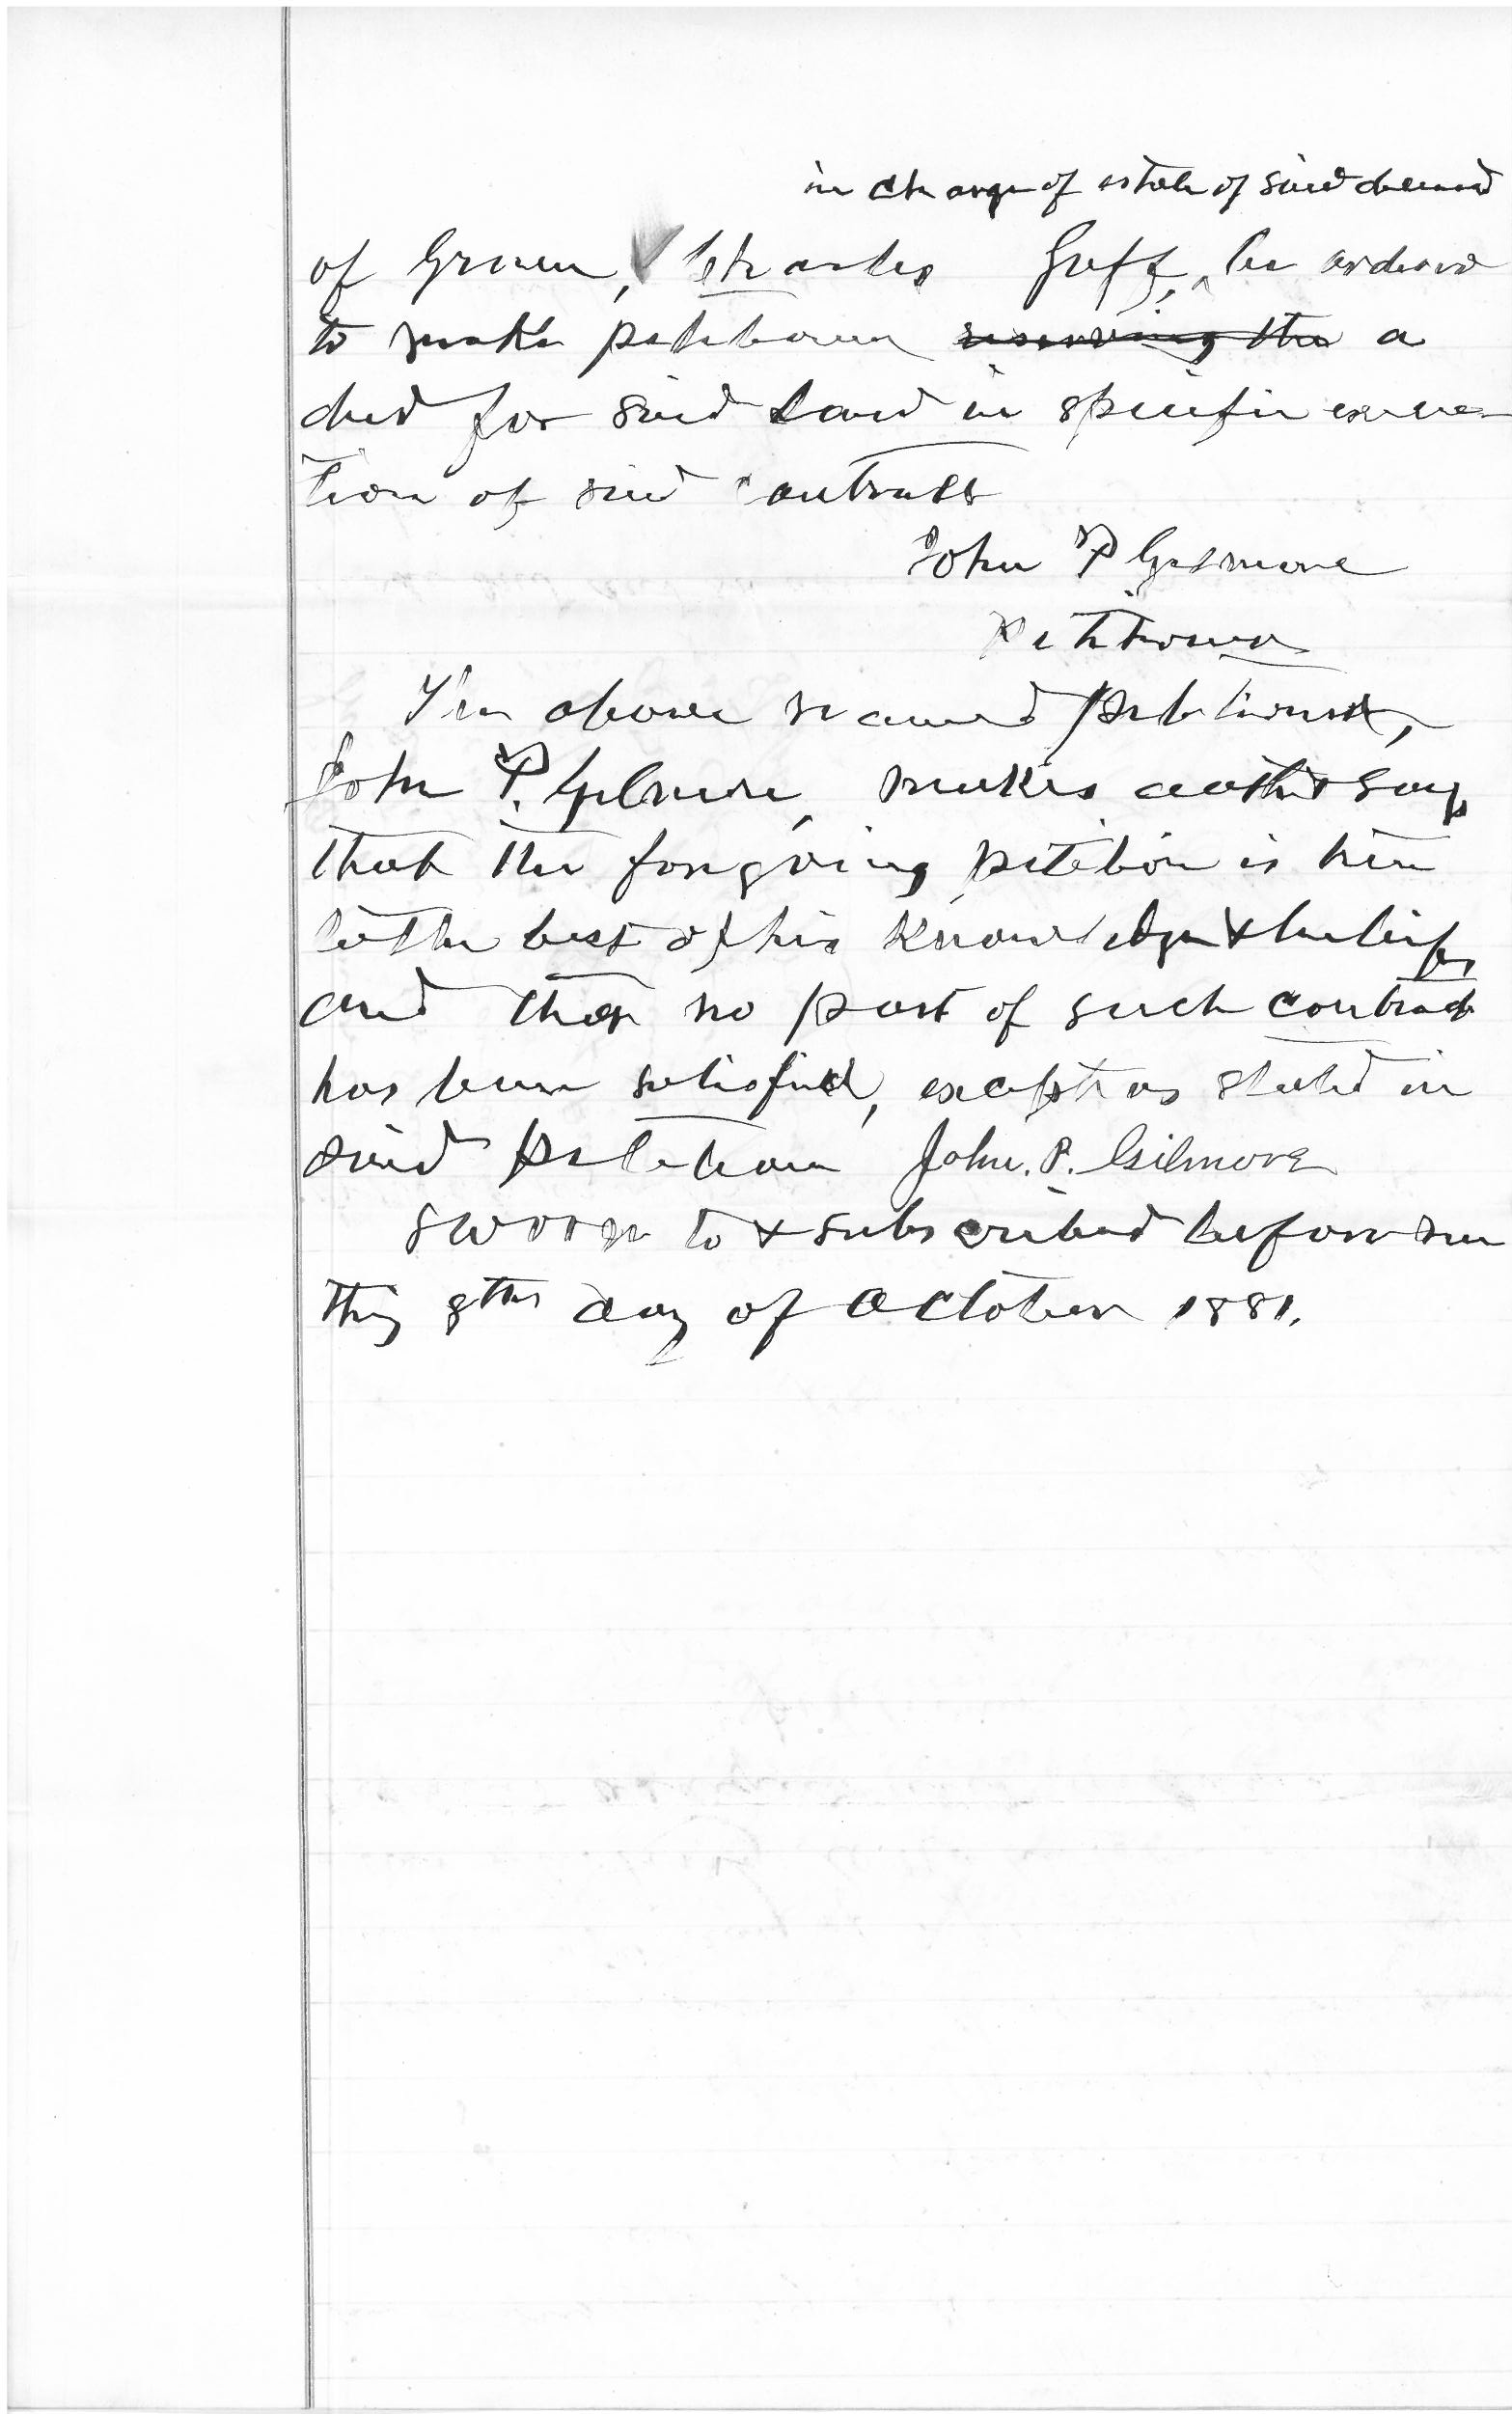 in charge of estate of said deceased
of Green, Charles Goff, be ordered
to make petitioner reserving the a
deed for said land in specific execu-
tion of said contract
John P Gilmore
Petitioner
The above named petitioner,
John P. Gilmore, makes oath & says
that the foregoing petition is true
to the best of his knowledge & belief,
and that no part of such contract
has been satisfied, except as stated in
said petition John. P. Gilmore
Sworn to & subscribed before me
this 8th day of October 1881.